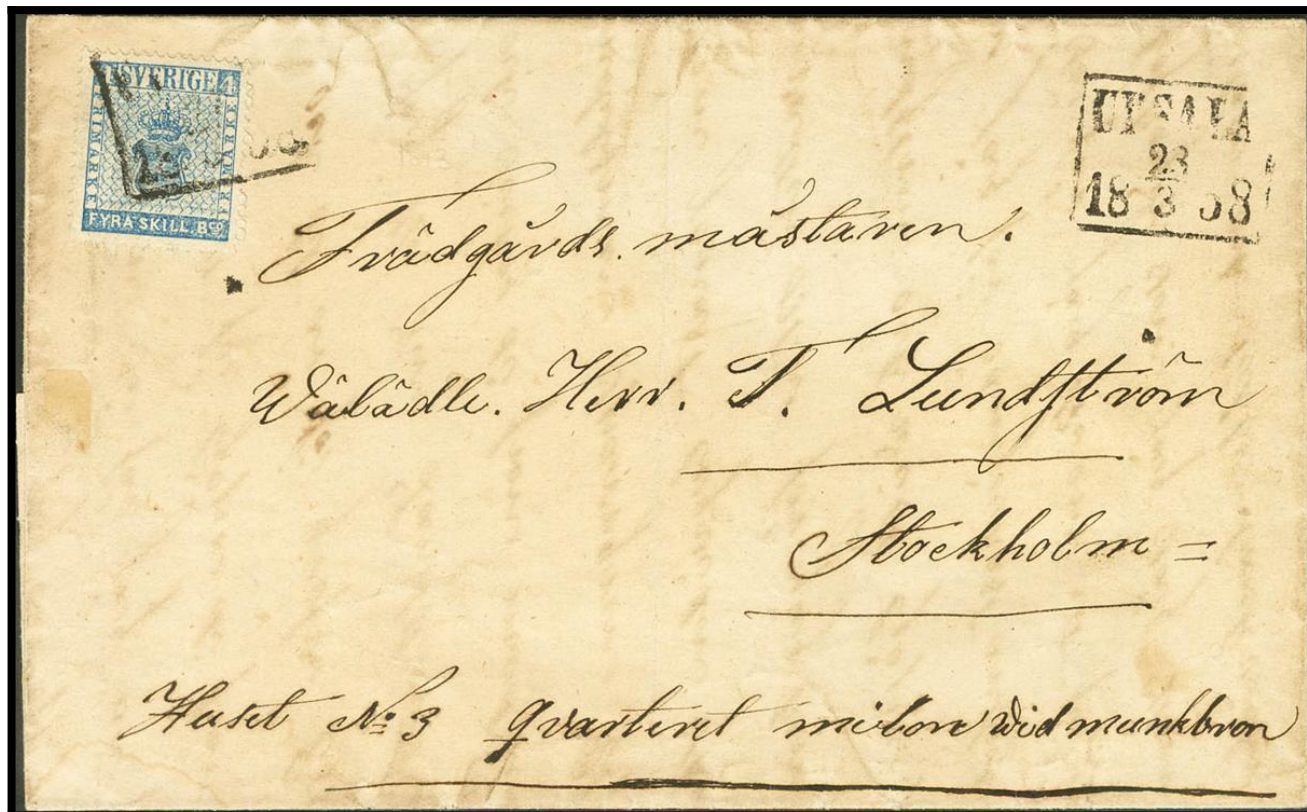 SVERIGE 4
FRIMÄRKE
FRIMÄRKE
FYRA SKILL. Bco
UPSALA
23
18 3 58
Trädgårds. mästaren.
Wälädle. Herr. T. Lundström
Stockholm =
Huset No 3 qvarteret milon wid munkbron